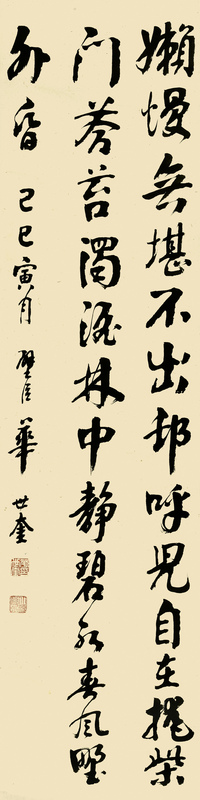 嬾慢無堪不出邨呼兒自在掩柴
門蒼苔濁酒林中靜碧水春風墅
外昏 己巳寅月 璧臣華世奎